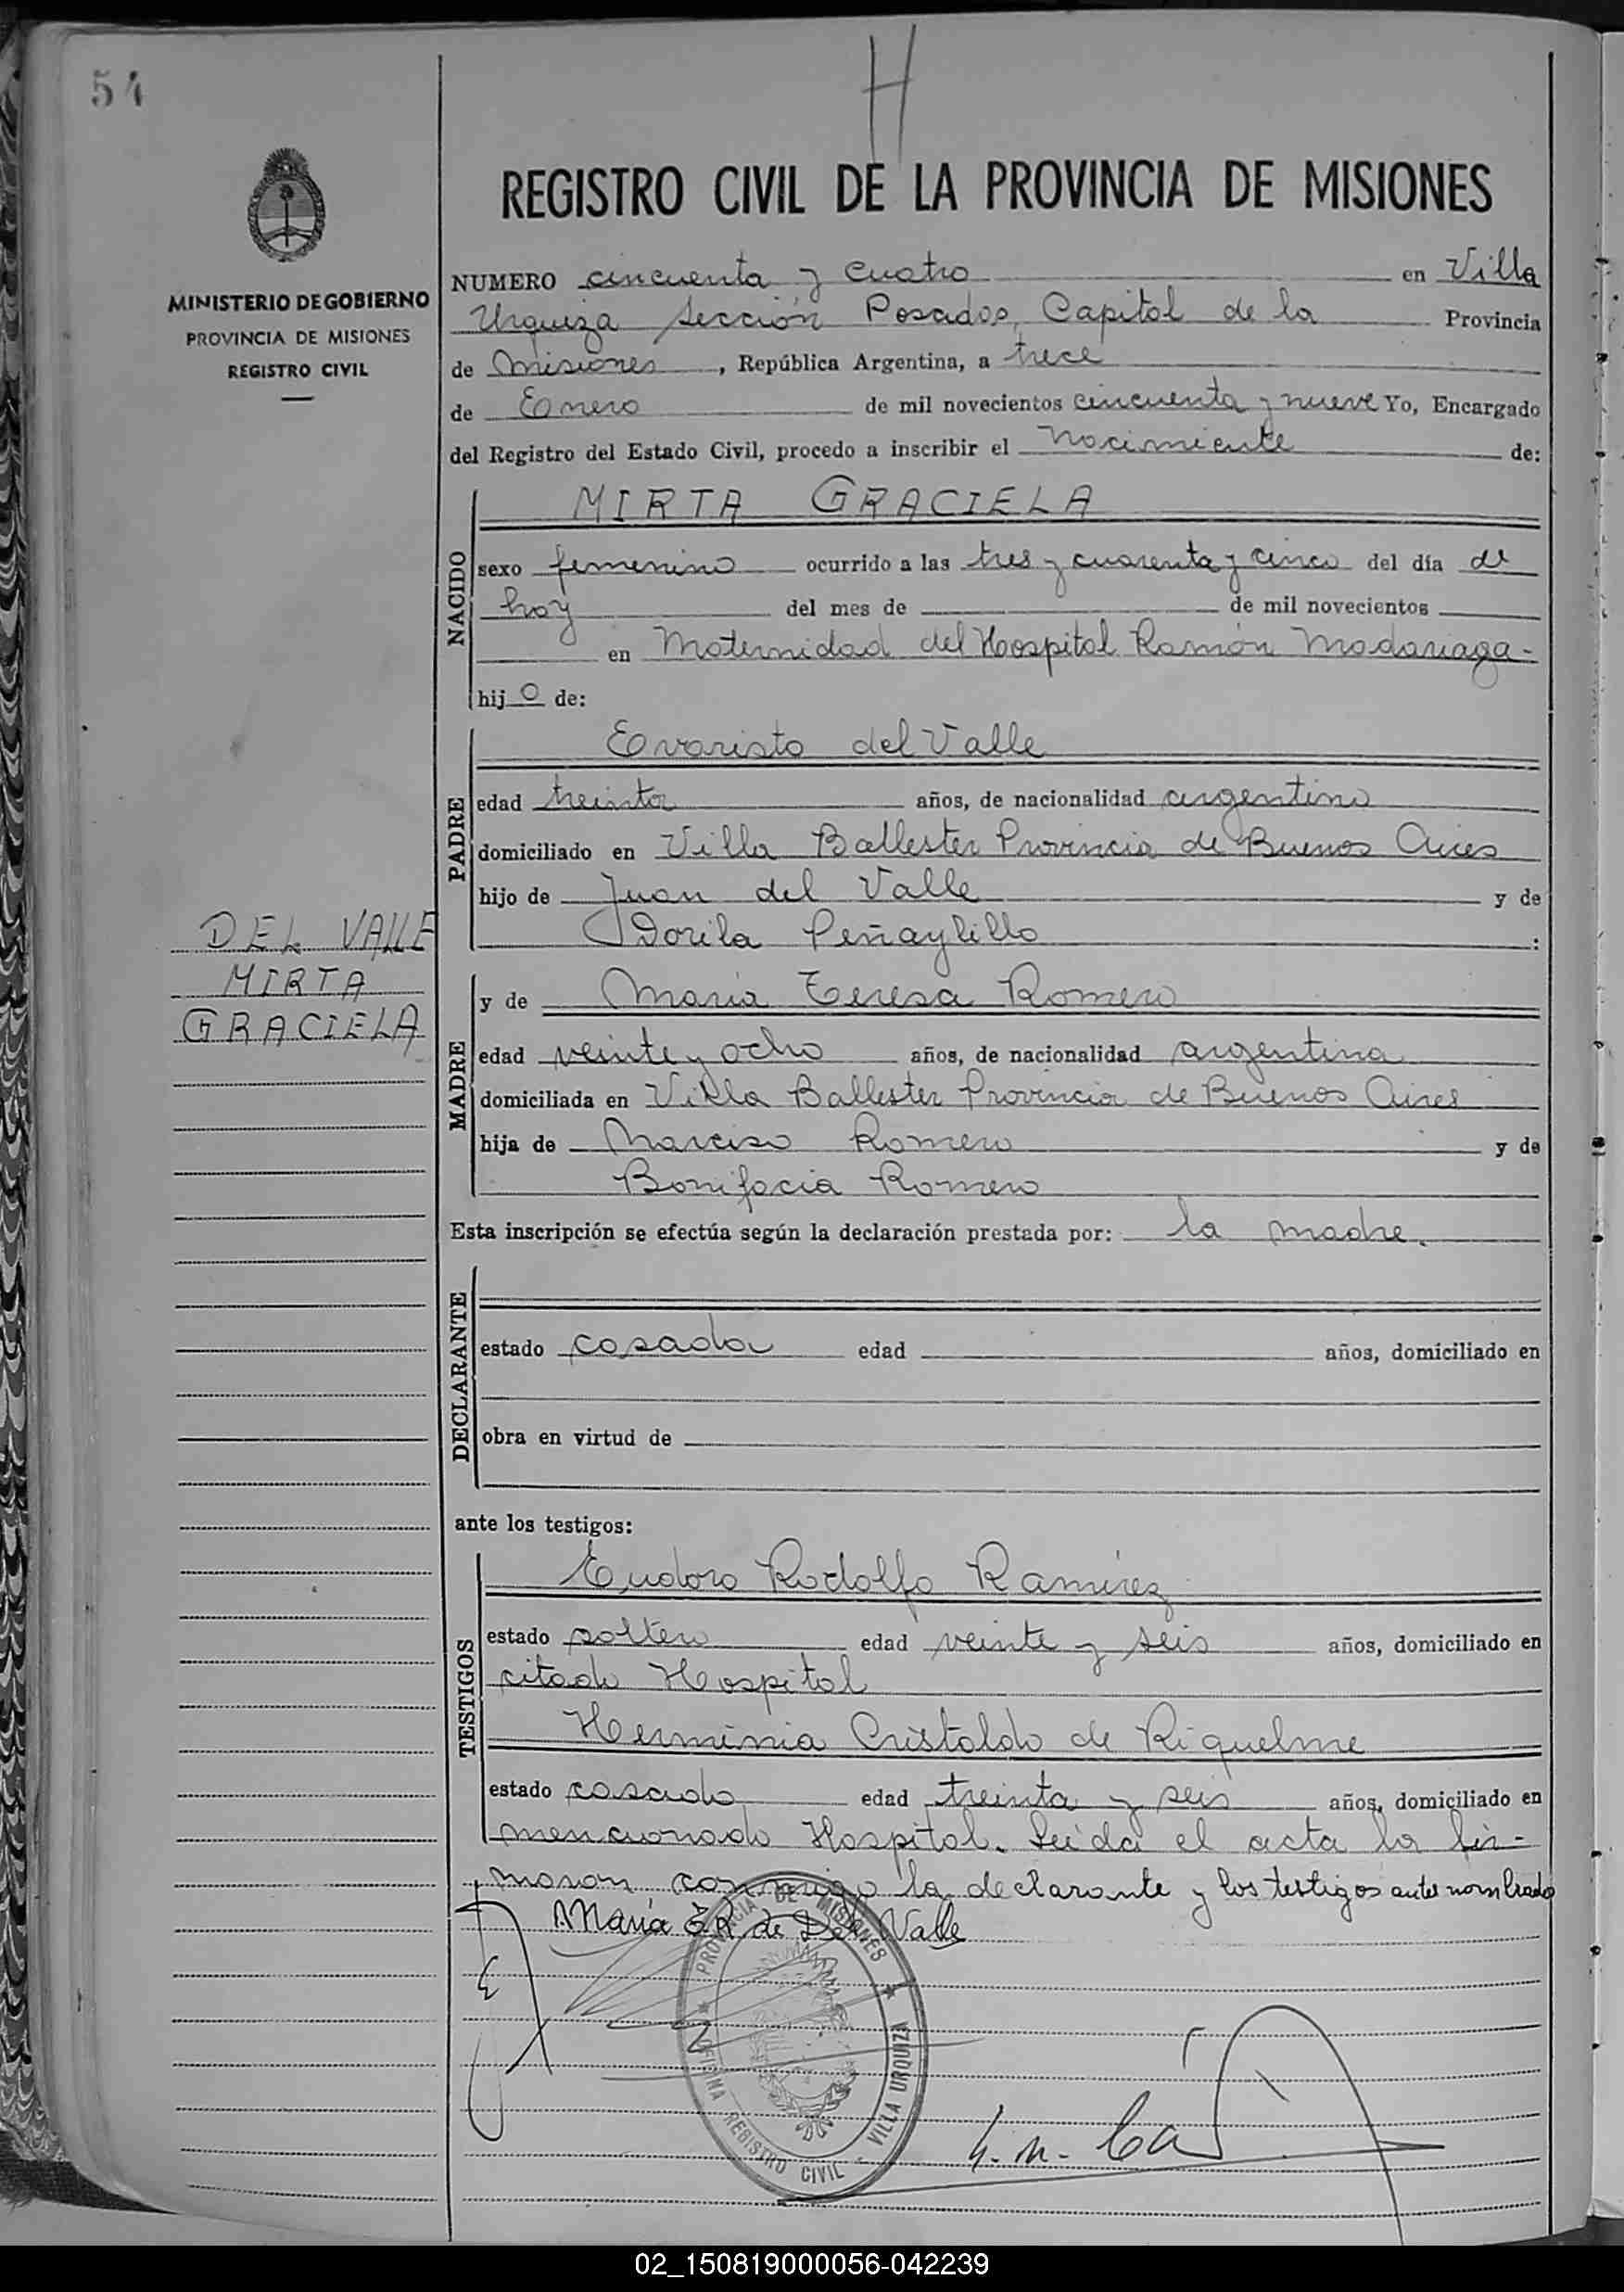 54
H
REGISTRO CIVIL DE LA PROVINCIA DE MISIONES
MINISTERIO DE GOBIERNO
PROVINCIA DE MISIONES
REGISTRO CIVIL
NUMERO cincuenta y cuatro en Villa
Urquiza Sección Posadas, Capital de la Provincia
de Misiones, República Argentina, a trece
de Enero de mil novecientos cincuenta y nueve Yo, Encargado
del Registro del Estado Civil, procedo a inscribir el Nacimiento de:
NACIDO
MIRTA GRACIELA
sexo femenino ocurrido a las tres y cuarenta y cinco del día de
hoy del mes de de mil novecientos
en Maternidad del Hospital Ramón Madariaga-
hij a de:
PADRE
Evaristo del Valle
edad treinta años, de nacionalidad argentino
domiciliado en Villa Ballester Provincia de Buenos Aires
hijo de Juan del Valle y de
Dorila Peñaylillo :
DEL VALLE
MIRTA
GRACIELA
MADRE
y de María Teresa Romero
edad veinte y ocho años, de nacionalidad argentina
domiciliada en Villa Ballester Provincia de Buenos Aires
hija de Narciso Romero y de
Bonifacia Romero
Esta inscripción se efectúa según la declaración prestada por: la madre.
DECLARANTE
estado casada edad años, domiciliado en
obra en virtud de
ante los testigos:
TESTIGOS
Eudoro Rodolfo Ramírez
estado soltero edad veinte y seis años, domiciliado en
citado Hospital
Herminia Cristaldo de Riquelme
estado casada edad treinta y seis años, domiciliado en
mencionado Hospital. Leída el acta la fir-
maron conmigo la declarante y los testigos antes nombrados
María T.R. de Del Valle
PROVINCIA DE MISIONES
OFICINA REGISTRO CIVIL - VILLA URQUIZA
02_150819000056-042239